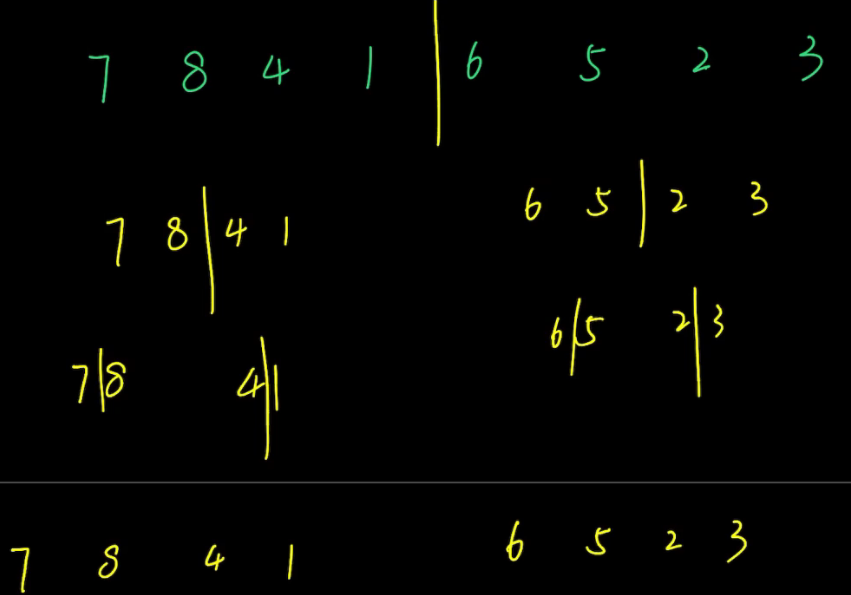 7 8 4 1 | 6 5 2 3
7 8 | 4 1 6 5 | 2 3
7 | 8 4 | 1 6 | 5 2 | 3
7 8 4 1 6 5 2 3